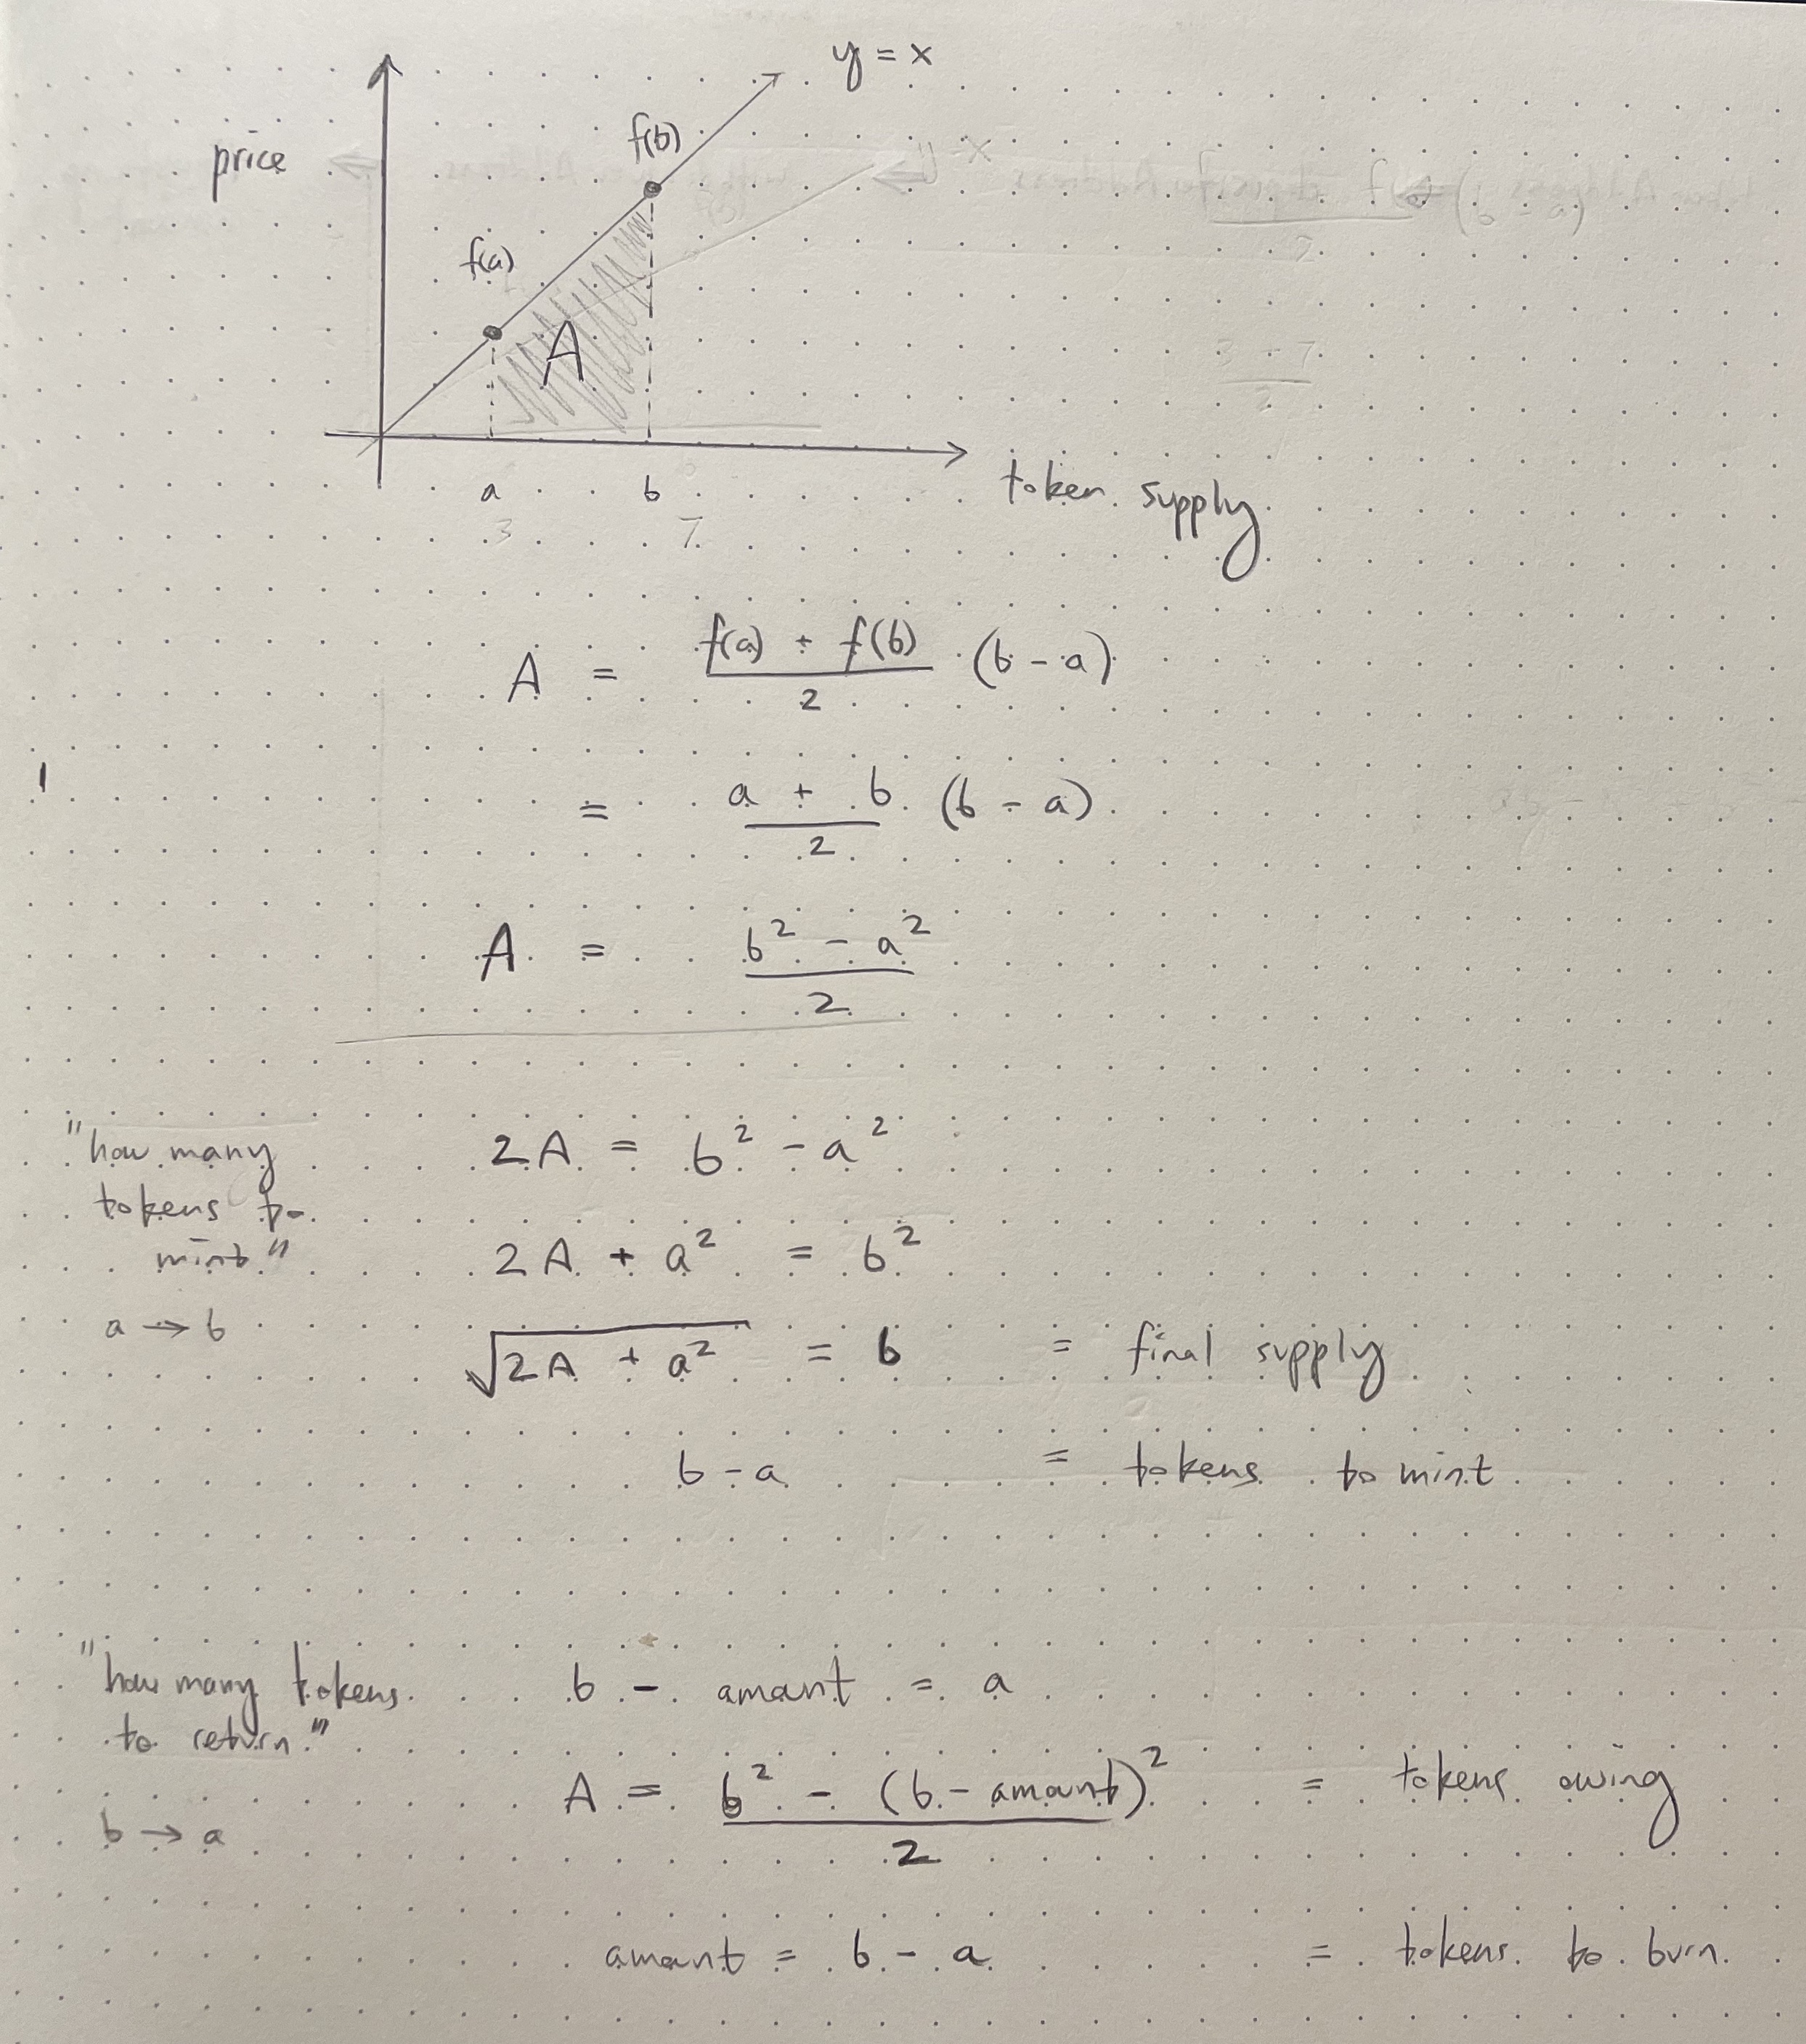 y = x
f(b)
price
f(a)
A
a b
3 7
token supply
A = f(a) + f(b) / 2 · (b - a)
= a + b / 2 (b - a)
A = b² - a² / 2
"how many
tokens to
mint"
a → b
2A = b² - a²
2A + a² = b²
√2A + a² = b = final supply
b - a = tokens to mint
"how many tokens
to return"
b → a
b - amount = a
A = b² - (b - amount)² / 2 = tokens owing
amount = b - a = tokens to burn